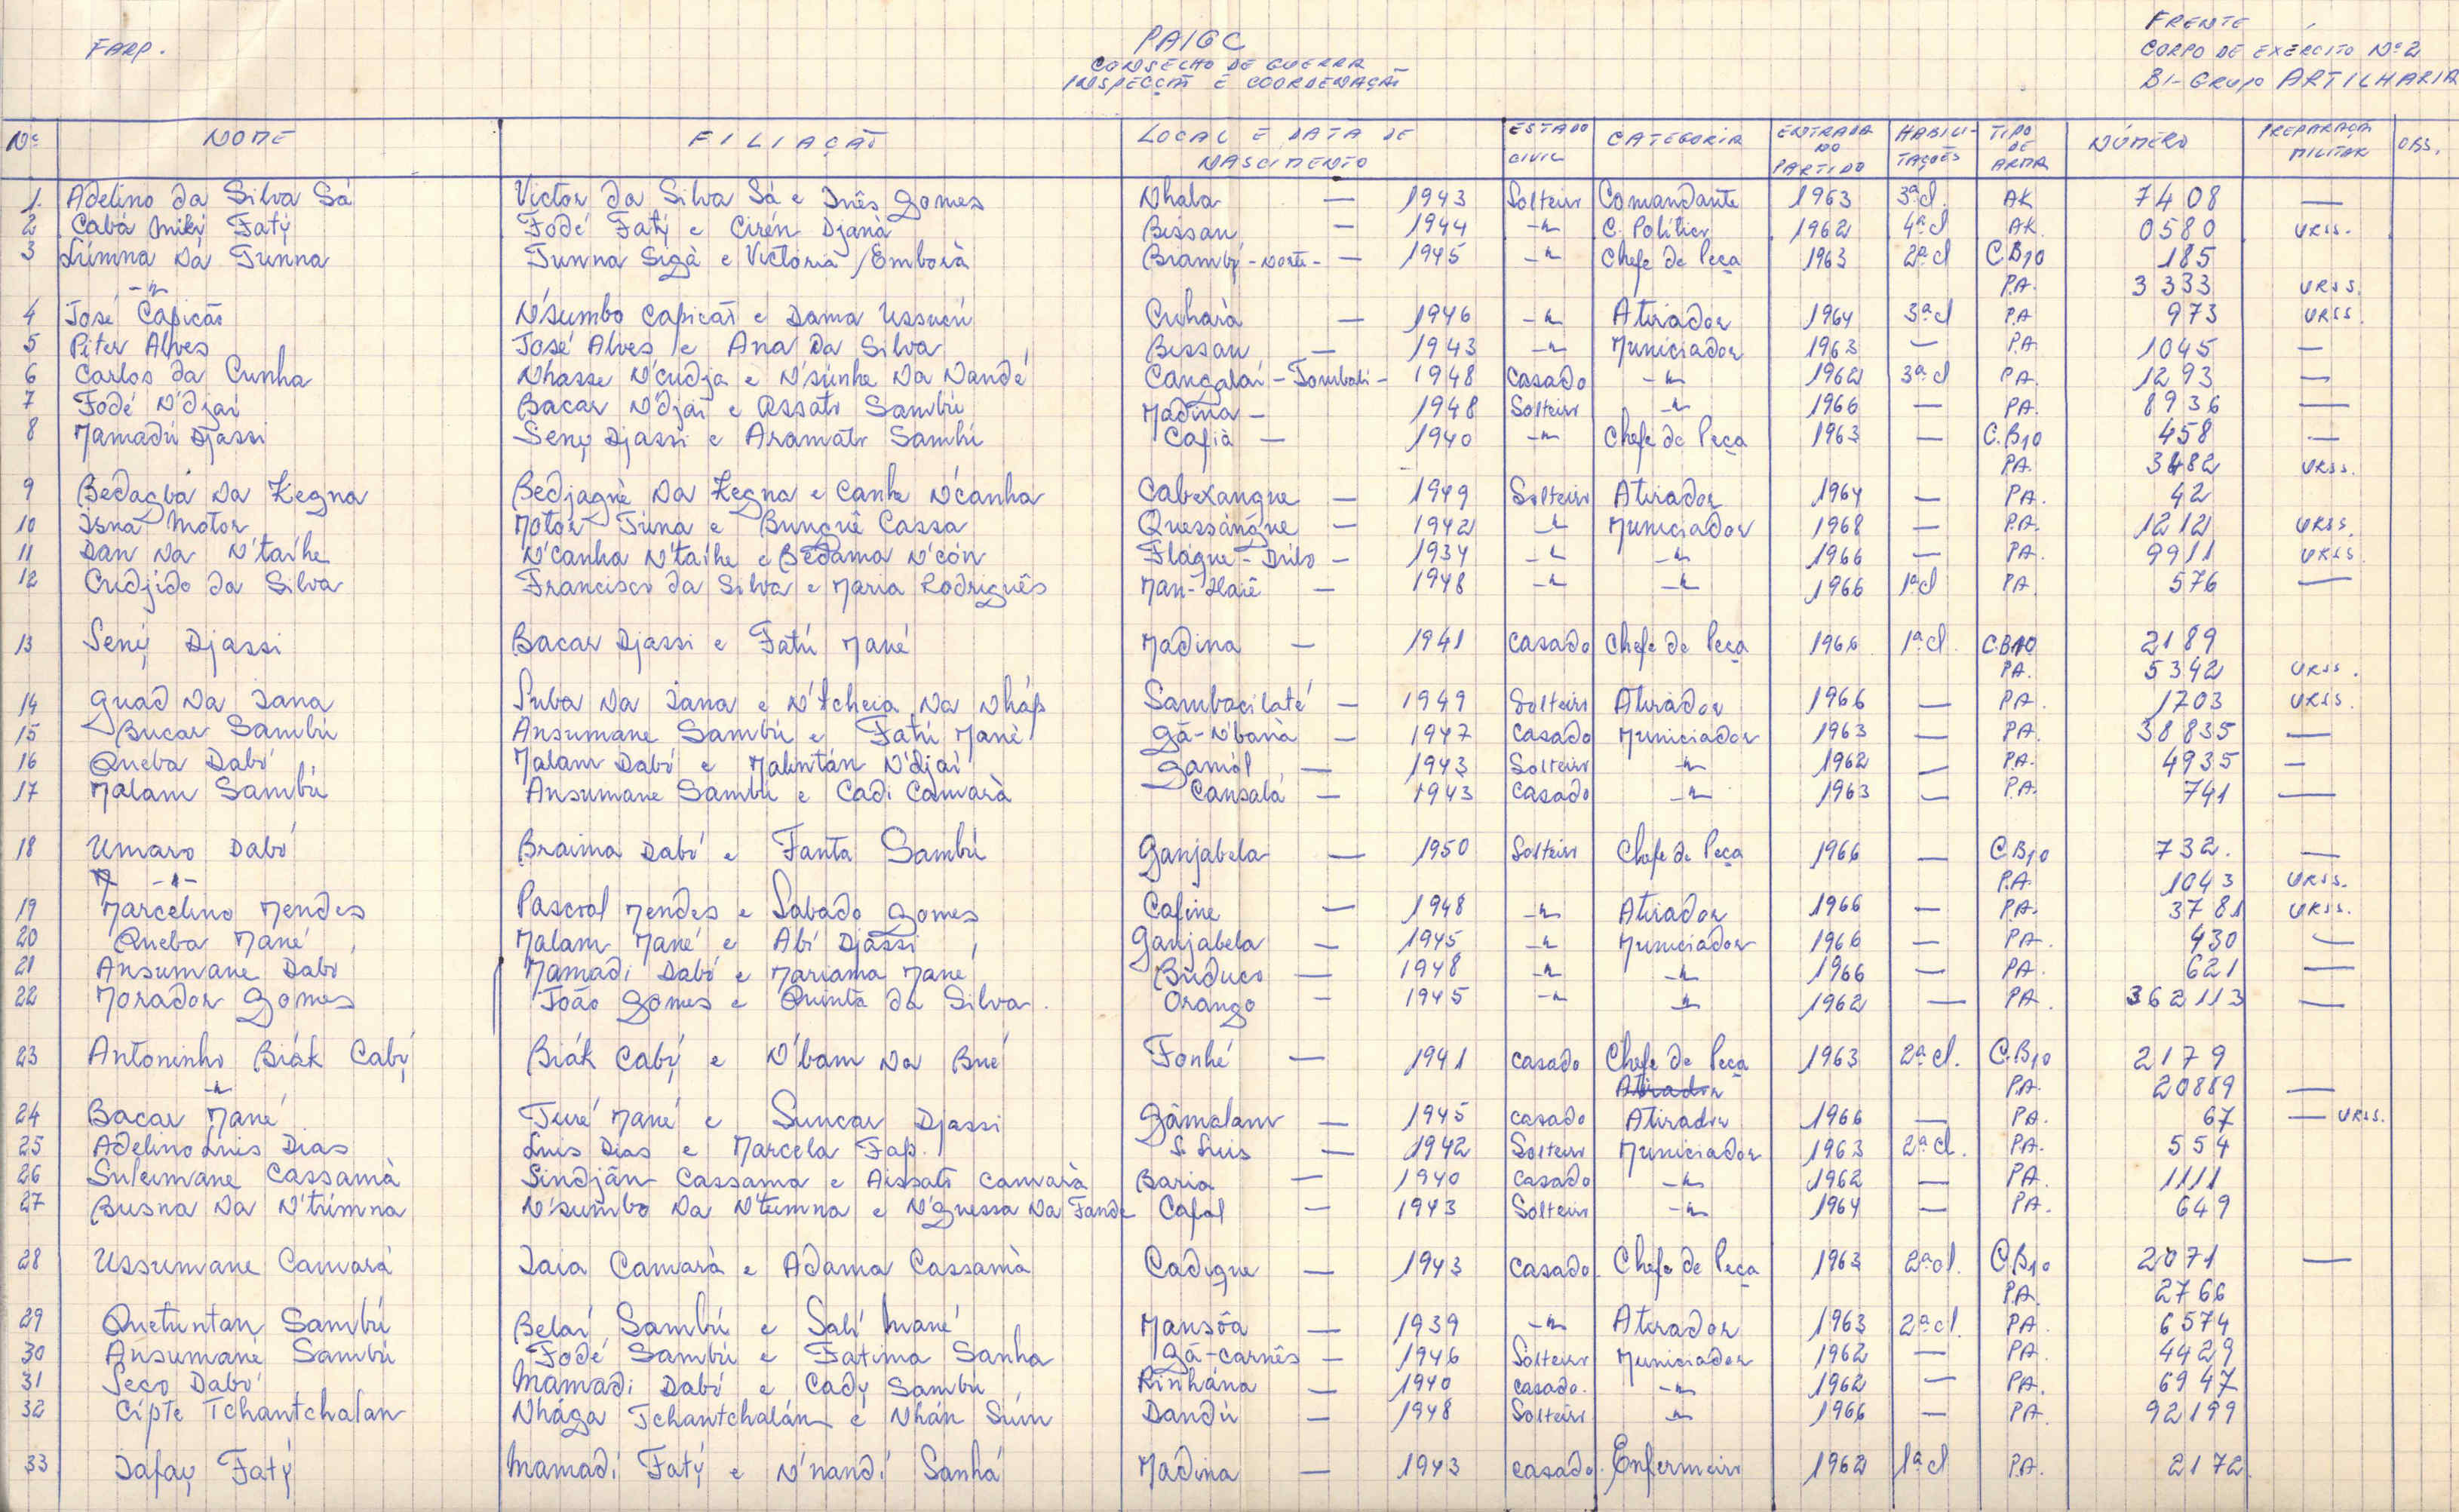 FARP.
PAIGC
CONSELHO DE GUERRA
INSPECÇÃO E COORDENAÇÃO
FRENTE
CORPO DE EXÉRCITO Nº 2
BI-GRUPO ARTILHARIA
Nº NOME FILIAÇÃO LOCAL E DATA DE NASCIMENTO ESTADO CIVIL CATEGORIA ENTRADA NO PARTIDO HABILITAÇÕES TIPO DE ARMA NÚMERO PREPARAÇÃO MILITAR OBS.
1. Adelino da Silva Sá Victor da Silva Sá e Inês Gomes Nhala — 1943 Solteiro Comandante 1963 3ª cl. AK 7408 —
2 Cabá Fatý Fodé Fatý e Cirén Djaná Bissau — 1944 -"- C. Político 1962 4ª cl AK. 0580 URSS.
3 Lúmna Dá Tunna Tunna Sigà e Victória Emborà Biambý - Norte - — 1945 -"- Chefe de Peça 1963 2ª cl C.B10 185
-"- P.A. 3333 URSS.
4 José Capicão N'sumbo Capicão e Dama Ussucú Cuhárà — 1946 -"- Atirador 1964 3ª cl P.A 973 URSS.
5 Piter Alves José Alves e Ana Da Silva Bissau — 1943 -"- Municiador 1963 — P.A 1045 —
6 Carlos da Cunha Nhasse N'cudja e N'súnhe Na Nandé Cangalaí - Tombali - 1948 Casado -"- 1962 3ª cl P.A. 1293 —
7 Fodé N'djai Bacar N'djai e Assato Sambú Madina — 1948 Solteiro -"- 1966 — P.A. 8936 —
8 Mamadú Djassi Sený Djassi e Aramato Sambú Cafià — 1940 -"- Chefe de Peça 1963 — C.B10 458 —
P.A. 3482 URSS.
9 Bedagba Na Kegna Bedjagnè Na Kegna e Canhe N'canha Cabexangue — 1949 Solteiro Atirador 1964 — P.A. 42
10 Isna Motor Motor Túna e Bunquê Cassa Quessángue — 1942 -"- Municiador 1968 — P.A. 1212 URSS.
11 Dan Na N'taíhe N'canha N'taíhe e Bedama N'cón Flaque - Dúlo — 1934 -"- -"- 1966 — P.A. 9911 URSS.
12 Cudjido da Silva Francisco da Silva e Maria Rodriguês Man-Ilaiê — 1948 -"- -"- 1966 1ª cl P.A. 576 —
13 Sený Djassi Bacar Djassi e Fatú Mané Madina — 1941 casado Chefe de Peça 1966 1ª cl. C.B10 2189
P.A. 5342 URSS.
14 Guad Na Iana Suba Na Iana e N'tcheia Na Nháp Sambacilaté — 1949 Solteiro Atirador 1966 — P.A. 1703 URSS.
15 Bucar Sambú Ansumane Sambú e Fatú Mané Gã-N'banà — 1947 Casado Municiador 1963 — P.A. 38835 —
16 Queba Dabó Malam Dabó e Malintán N'djai Gamól — 1943 Solteiro -"- 1962 — P.A. 4935 —
17 Malam Sambú Ansumane Sambú e Cadi Camarà Cansalà — 1943 casado -"- 1963 — P.A. 741 —
18 Umaro Dabó Braima Dabó e Fanta Sambú Ganjabela — 1950 Solteiro Chefe de Peça 1966 — C.B10 732. —
-"- P.A. 1043 URSS.
19 Marcelino Mendes Pascoal Mendes e Sabado Gomes Cafine — 1948 -"- Atirador 1966 — P.A. 3781 URSS.
20 Queba Mané Malam Mané e Abí Djassi Ganjabela — 1945 -"- Municiador 1966 — P.A. 430 —
21 Ansumane Dabó Mamadi Dabó e Mariama Mané Búduco — 1948 -"- -"- 1966 — P.A. 621 —
22 Morador Gomes João Gomes e Quinta da Silva. Orango — 1945 -"- -"- 1962 — P.A. 362113 —
23 Antoninho Biák Cabý Biák Cabý e N'bam Na Bué Fonhé — 1941 casado Chefe de Peça 1963 2ª cl. C.B10 2179
-"- Atirador P.A. 20889 —
24 Bacar Mané Turé Mané e Suncar Djassi Gâmalam — 1945 casado Atirador 1966 — P.A. 67 — URSS.
25 Adelino Luis Dias Luis Dias e Marcela Fap. S. Luis — 1942 Solteiro Municiador 1963 2ª cl. P.A. 554
26 Suleimane Cassamà Sindján Cassama e Aissato Camarà Baria — 1940 casado -"- 1962 — P.A. 1111
27 Busna Na N'túmna N'sumbo Na N'tumna e N'guessa Na Fande Cafal — 1943 Solteiro -"- 1964 — P.A. 649
28 Ussumane Camará Iaia Camarà e Adama Cassamà Cadique — 1943 casado. Chefe de Peça 1963 2ª cl. C.B10 2071 —
P.A. 2766
29 Quetuntan Sambú Belaí Sambú e Salí Mané Mansôa — 1939 -"- Atirador 1963 2ª cl. P.A. 6574
30 Ansumané Sambú Fodé Sambú e Fatima Sanha Gã-carnês — 1946 Solteiro Municiador 1962 — P.A. 4429
31 Seco Dabó Mamadi Dabó e Cadý Sambú Rinhána — 1940 casado. -"- 1962 — P.A. 6947
32 Cípte Tchantchalan Nhága Tchantchalán e Nhán Súm Dandú — 1948 Solteiro -"- 1966 — P.A. 92199
33 Iafaý Fatý Mamadí Fatý e N'nandí Sanhá Madina — 1943 casado. Enfermeiro 1962 1ª cl P.A. 2172